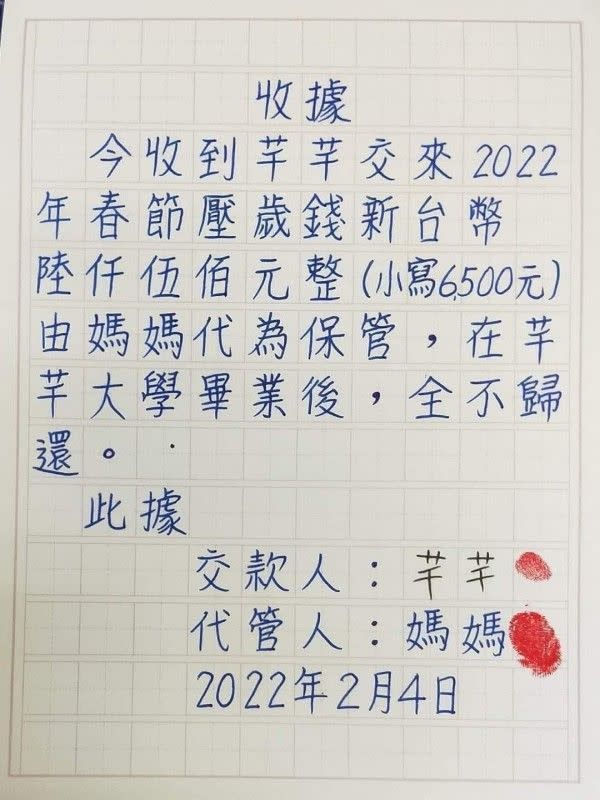 收據
今收到芊芊交來2022
年春節壓歲錢新台幣
陸仟伍佰元整(小寫6,500元)
由媽媽代為保管，在芊
芊大學畢業後，全不歸
還。
此據
交款人：芊芊
代管人：媽媽
2022年2月4日